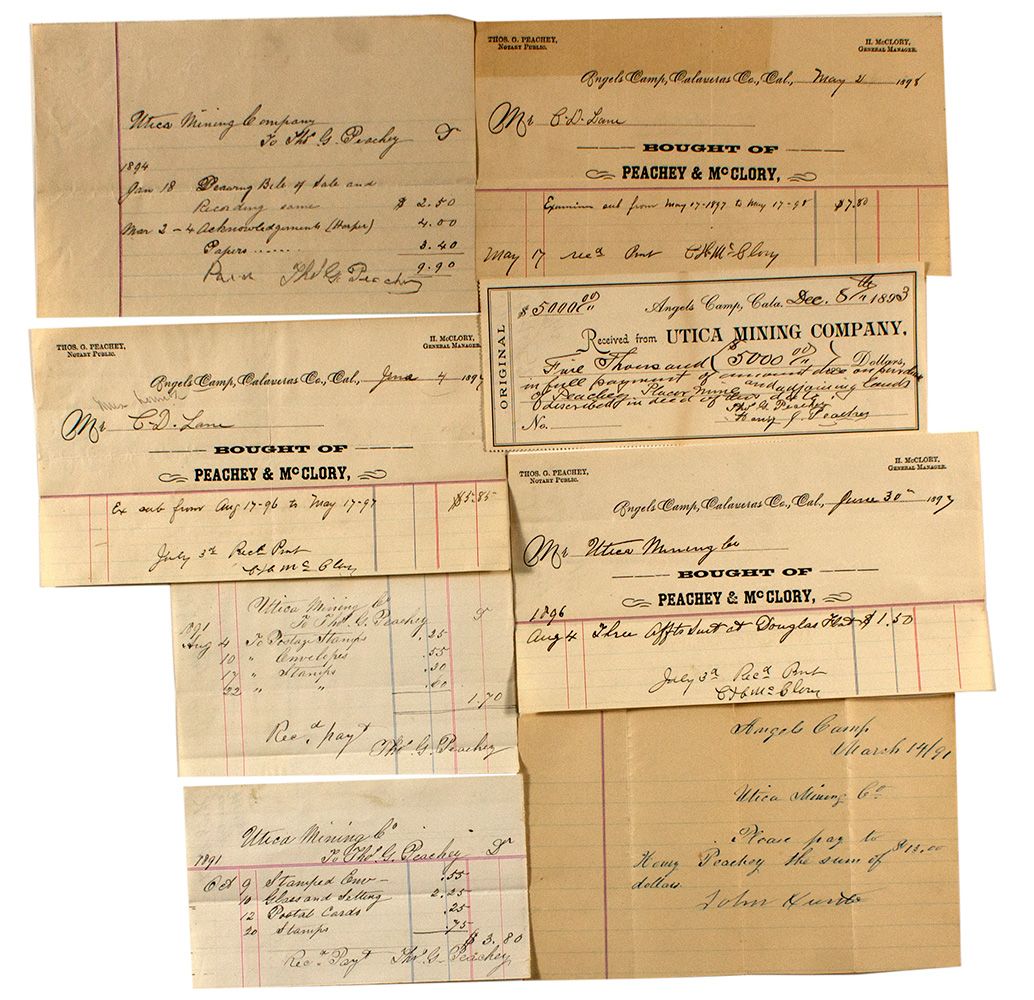 Utica Mining Company
To Thos G. Peachey Dr
1894
Jan 18 Drawing Bill of Sale and
Recording same $ 2.50
Mar 2-4 Acknowledgements (Harper) 4.00
Papers ...... 3.40
9.90
Paid Thos G. Peachey
THOS. G. PEACHEY,
NOTARY PUBLIC.
H. MCCLORY,
GENERAL MANAGER.
Angels Camp, Calaveras Co., Cal., May 21 1898
Mr C. D. Lane
BOUGHT OF
PEACHEY & McCLORY,
Examiner sub from May 17-1897 to May 17-98 $7.80
May 17 recd Pmt C H Mc Clory
ORIGINAL
$5000 00/" Angels Camp, Cala. Dec. 8th 1893
Received from UTICA MINING COMPANY,
Five Thousand ($5000 00/") Dollars,
in full payment of amount due on purchase
of Peachey Placer Mine and adjoining lands
described in deed of this date
Thos G. Peachey
No. Henry J. Peachey
THOS. G. PEACHEY,
NOTARY PUBLIC.
H. MCCLORY,
GENERAL MANAGER.
Angels Camp, Calaveras Co., Cal., June 4 1897
Mr C. D. Lane
BOUGHT OF
PEACHEY & McCLORY,
Ex sub from Aug 17-96 to May 17-97 $5.85
July 3rd Recd Pmt
C H Mc Clory
THOS. G. PEACHEY,
NOTARY PUBLIC.
H. MCCLORY,
GENERAL MANAGER.
Angels Camp, Calaveras Co., Cal., June 30th 1897
Mr Utica Mining Co
BOUGHT OF
PEACHEY & McCLORY,
1896
Aug 4 Three Affts Suit at Douglas Flat $1.50
July 3d Recd Pmt
C H Mc Clory
Utica Mining Co
To Thos G. Peachey Dr
1891
Aug 4 To Postage Stamps .25
10 " Envelopes .55
17 " Stamps .30
22 " " .60
1.70
Recd payt
Thos G. Peachey
Angels Camp
March 14/91
Utica Mining Co
Please pay to
Henry Peachey the sum of $13.00
dollars
John
Utica Mining Co
1891 To Thos G. Peachey Dr
Oct 9 Stamped Env- .55
10 Glass and Setting 2.25
12 Postal Cards .25
20 Stamps .75
$3.80
Recd Payt Thos G. Peachey